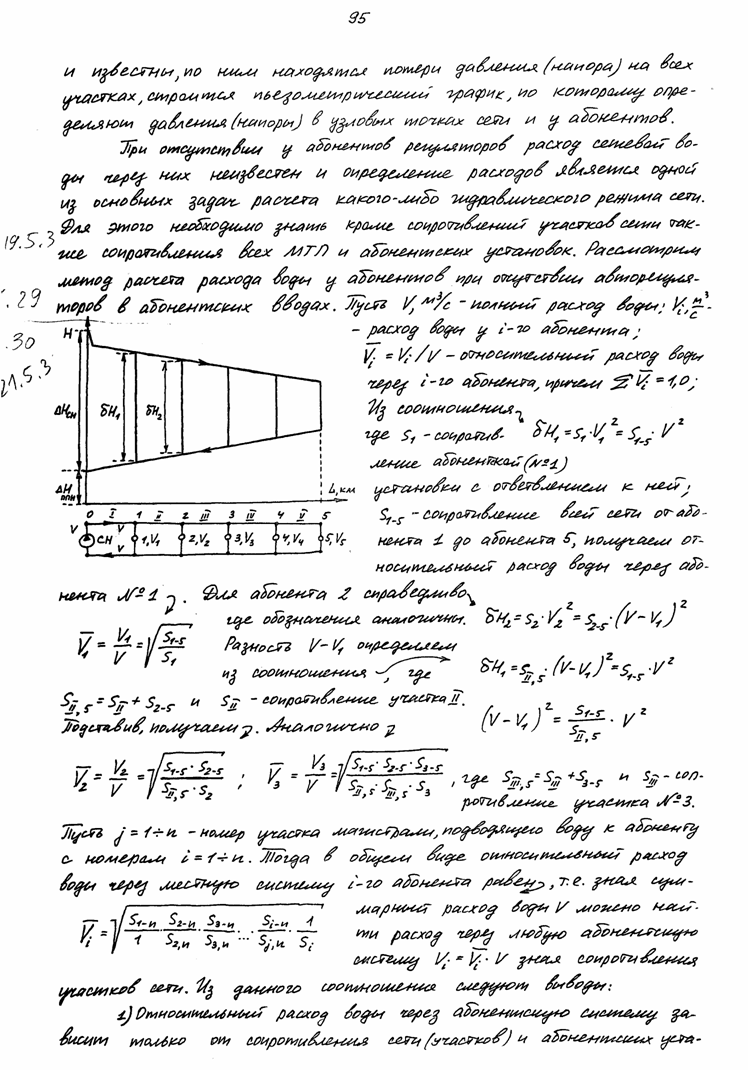 95
и известны, по ним находятся потери давления (напора) на всех
участках, строится пьезометрический график, по которому опре-
деляют давления (напоры) в узловых точках сети и у абонентов.
При отсутствии у абонентов регуляторов расход сетевой во-
ды через них неизвестен и определение расходов является одной
из основных задач расчета какого-либо гидравлического режима сети.
Для этого необходимо знать кроме сопротивлений участков сети так-
19.5.3
же сопротивления всех МТП и абонентских установок. Рассмотрим
метод расчета расхода воды у абонентов при отсутствии авторегуля-
.29
торов в абонентских вводах. Пусть V, м³/с - полный расход воды; Vi, м³/с -
.30
21.5.3
- расход воды у i-го абонента;
V̅i = Vi/V - относительный расход воды
через i-го абонента, причем Σ V̅i = 1,0;
Из соотношения
где S1 - сопротив- δH1 = S1·V1² = S1-5·V²
ление абонентской (№1)
установки с ответвлением к ней;
S1-5 - сопротивление всей сети от або-
нента 1 до абонента 5, получаем от-
носительный расход воды через або-
H
ΔHсн
δH1
δH2
ΔHпгн
L, км
0 I 1 II 2 III 3 IV 4 V 5
V V
СН 1,V1 2,V2 3,V3 4,V4 5,V5
V
нента №1. Для абонента 2 справедливо
где обозначения аналогичны. δH2 = S2·V2² = S2-5·(V-V1)²
V̅1 = V1/V = √(S1-5/S1)
Разность V-V1 определяем
из соотношения, где δH1 = SII,5·(V-V1)² = S1-5·V²
SII,5 = SII + S2-5 и SII - сопротивление участка II.
Подставив, получаем. Аналогично (V-V1)² = S1-5/SII,5 · V²
V̅2 = V2/V = √(S1-5·S2-5/SII,5·S2) ; V̅3 = V3/V = √(S1-5·S2-5·S3-5/SII,5·SIII,5·S3), где SIII,5 = SIII + S3-5 и SIII - соп-
ротивление участка №3.
Пусть j = 1÷n - номер участка магистрали, подводящего воду к абоненту
с номерам i = 1÷n. Тогда в общем виде относительный расход
воды через местную систему i-го абонента равен, т.е. зная сум-
V̅i = √(S1-n/1 · S2-n/S2,n · S3-n/S3,n · ... · Si-n/Sj,n · 1/Si)
марный расход воды V можно най-
ти расход через любую абонентскую
систему Vi = V̅i·V зная сопротивления
участков сети. Из данного соотношение следуют выводы:
1) Относительный расход воды через абонентскую систему за-
висит только от сопротивления сети (участков) и абонентских уста-